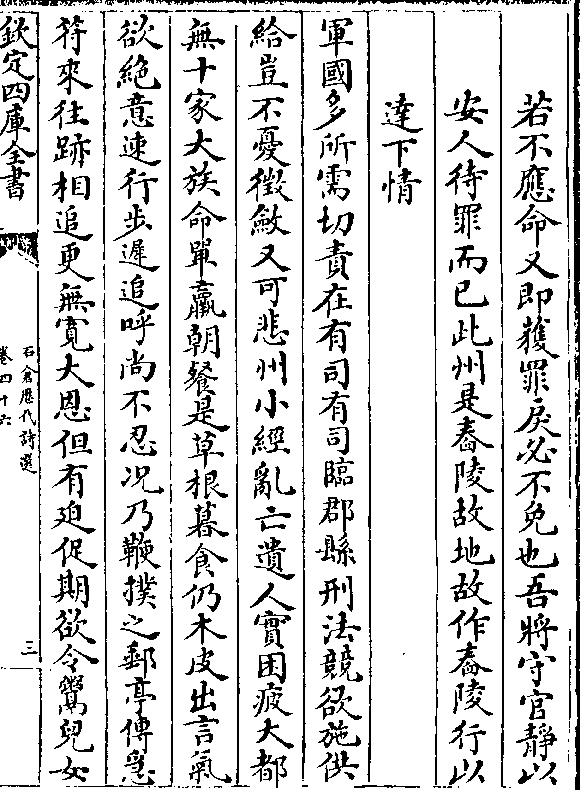 若不應命又即獲罪戾必不免也吾將守官靜以
安人待罪而已此州是舂陵故地故作舂陵行以
達下情
軍國多所需切責在有司有司臨郡縣刑法競欲施供
給豈不憂徵斂又可悲州小經亂亡遺人實困疲大都
無十家大族命單羸朝餐是草根暮食仍木皮出言氣
欲絶意速行步遲追呼尚不忍况乃鞭撲之郵亭傳急
符來往跡相追更無寛大恩但有迫促期欲令鬻兒女
欽定四庫全書
石倉歴代詩選
卷四十六
三